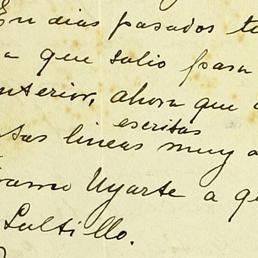 En dias pasados te
a que salio para
nterior, ahora que
escritas
tas lineas muy a
ramo Ugarte a q
Saltillo.